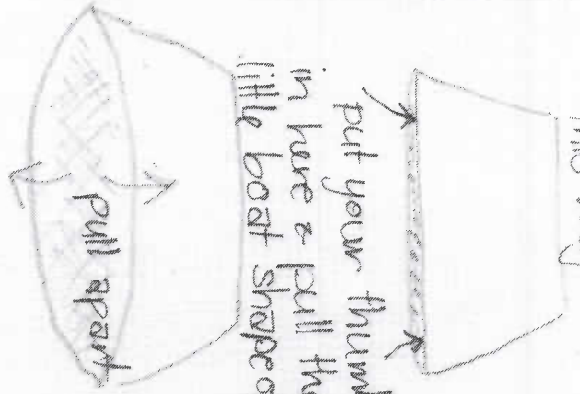 put your thumb
in here & pull
little boat shape
pull apart